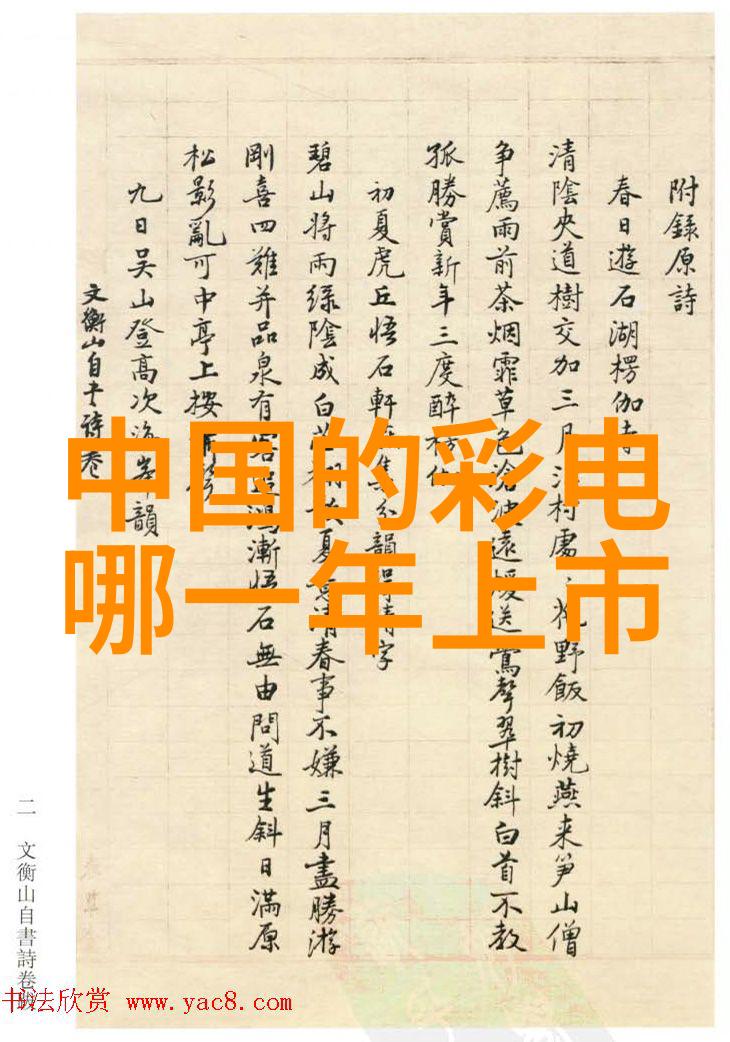 附錄原詩
春日遊石湖楞伽寺
清陰夾道樹交加三月村處〻花野飯初燒燕来笋山僧
争薦雨前茶烟霏草色滄波遠煖送鶯聲翠樹斜白首不教
孤勝賞新年三度醉
初夏虎丘悟石軒集分韻得清字
碧山将雨緑陰成白夏清春事不嫌三月盡勝游
剛喜四難并品泉有客鴻漸悟石無由問道生斜日滿原
松影亂可中亭上按
九日吴山登高次韻
文衡山自书詩卷
中国的彩电
哪一年上市
二 文衡山自書詩卷
书法欣赏 www.yac8.com